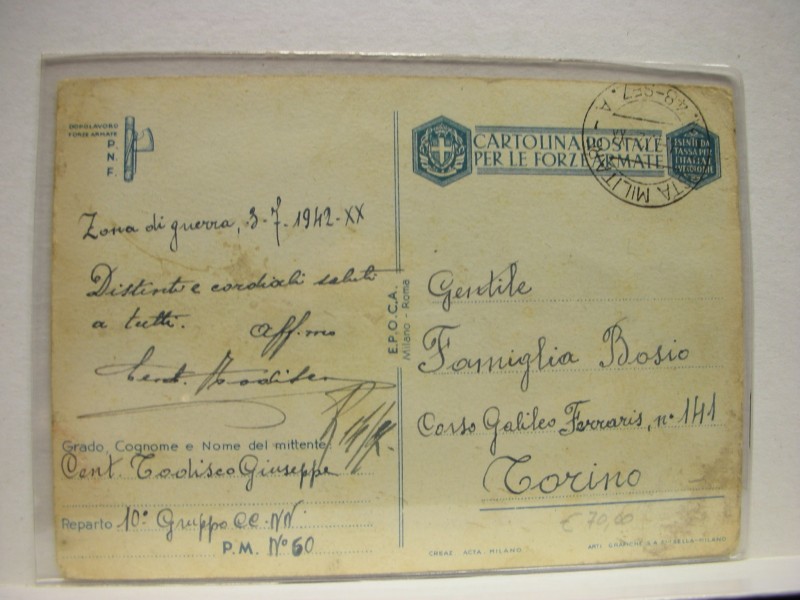 DOPOLAVORO
FORZE ARMATE
P.
N.
F.
Zona di guerra, 3-7-1942-XX
Distinti e cordiali saluti
a tutti. Aff.mo
Cent. Todisco
Grado, Cognome e Nome del mittente
Cent. Todisco Giuseppe
Reparto 10° Gruppo CC. NN.
P.M. N° 60
E.P.O.C.A.
Milano - Roma
CARTOLINA POSTALE
PER LE FORZE ARMATE
ESENTE DA
TASSA PER
L'ITALIA E
POSTA MILITARE
Gentile
Famiglia Bosio
Corso Galileo Ferraris, n° 141
Torino
€ 70,00
CREAZ. ACTA - MILANO